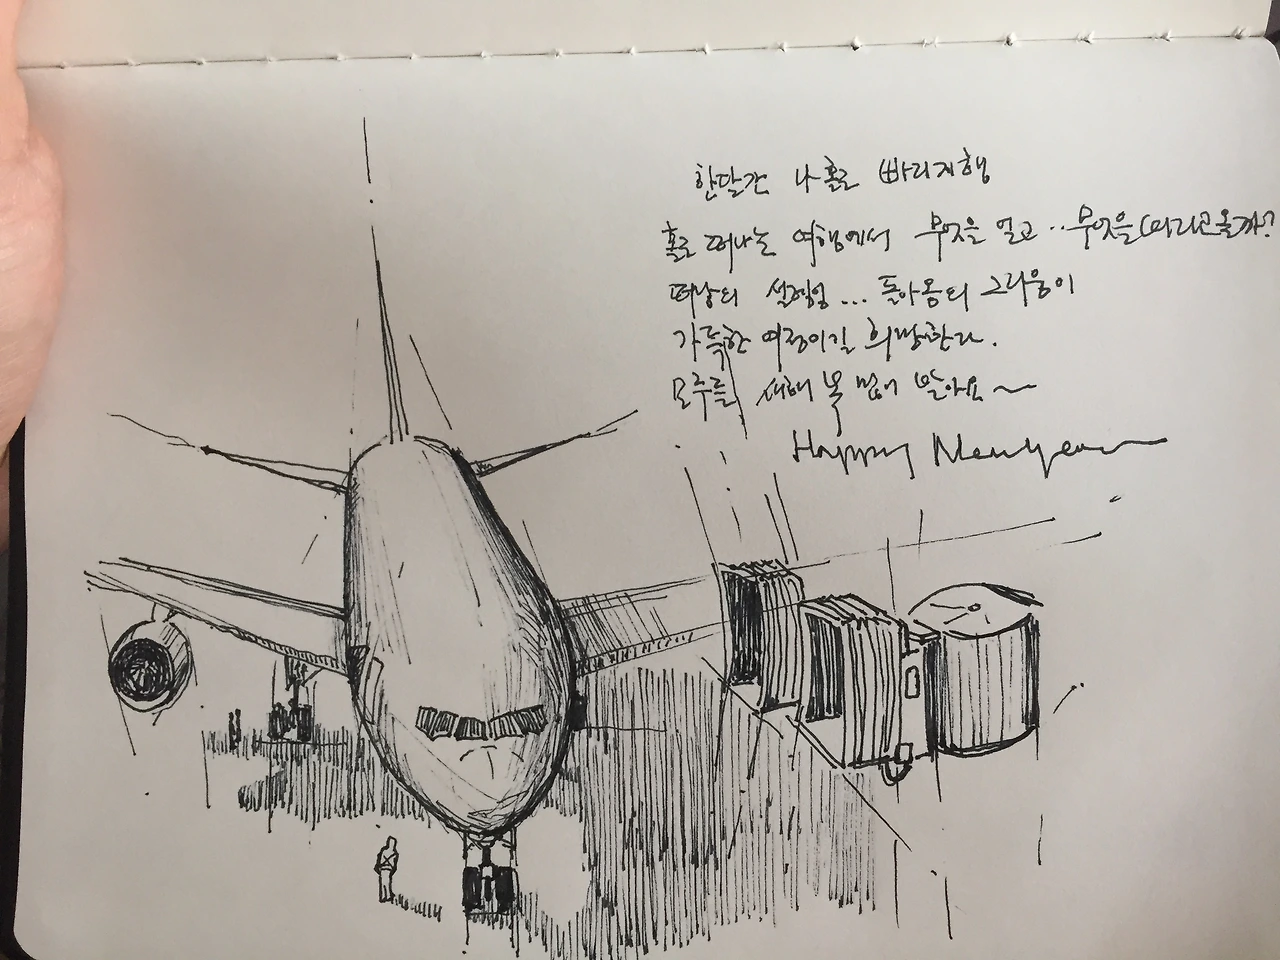 한달간 나홀로 빠리지행
홀로 떠나는 여행에서 무엇을 얻고.. 무엇을 버리고 올까?
떠남의 설레임... 돌아옴의 그리움이
가득한 여정이길 희망한다.
모두들 새해 복 많이 받아요~
Happy New year